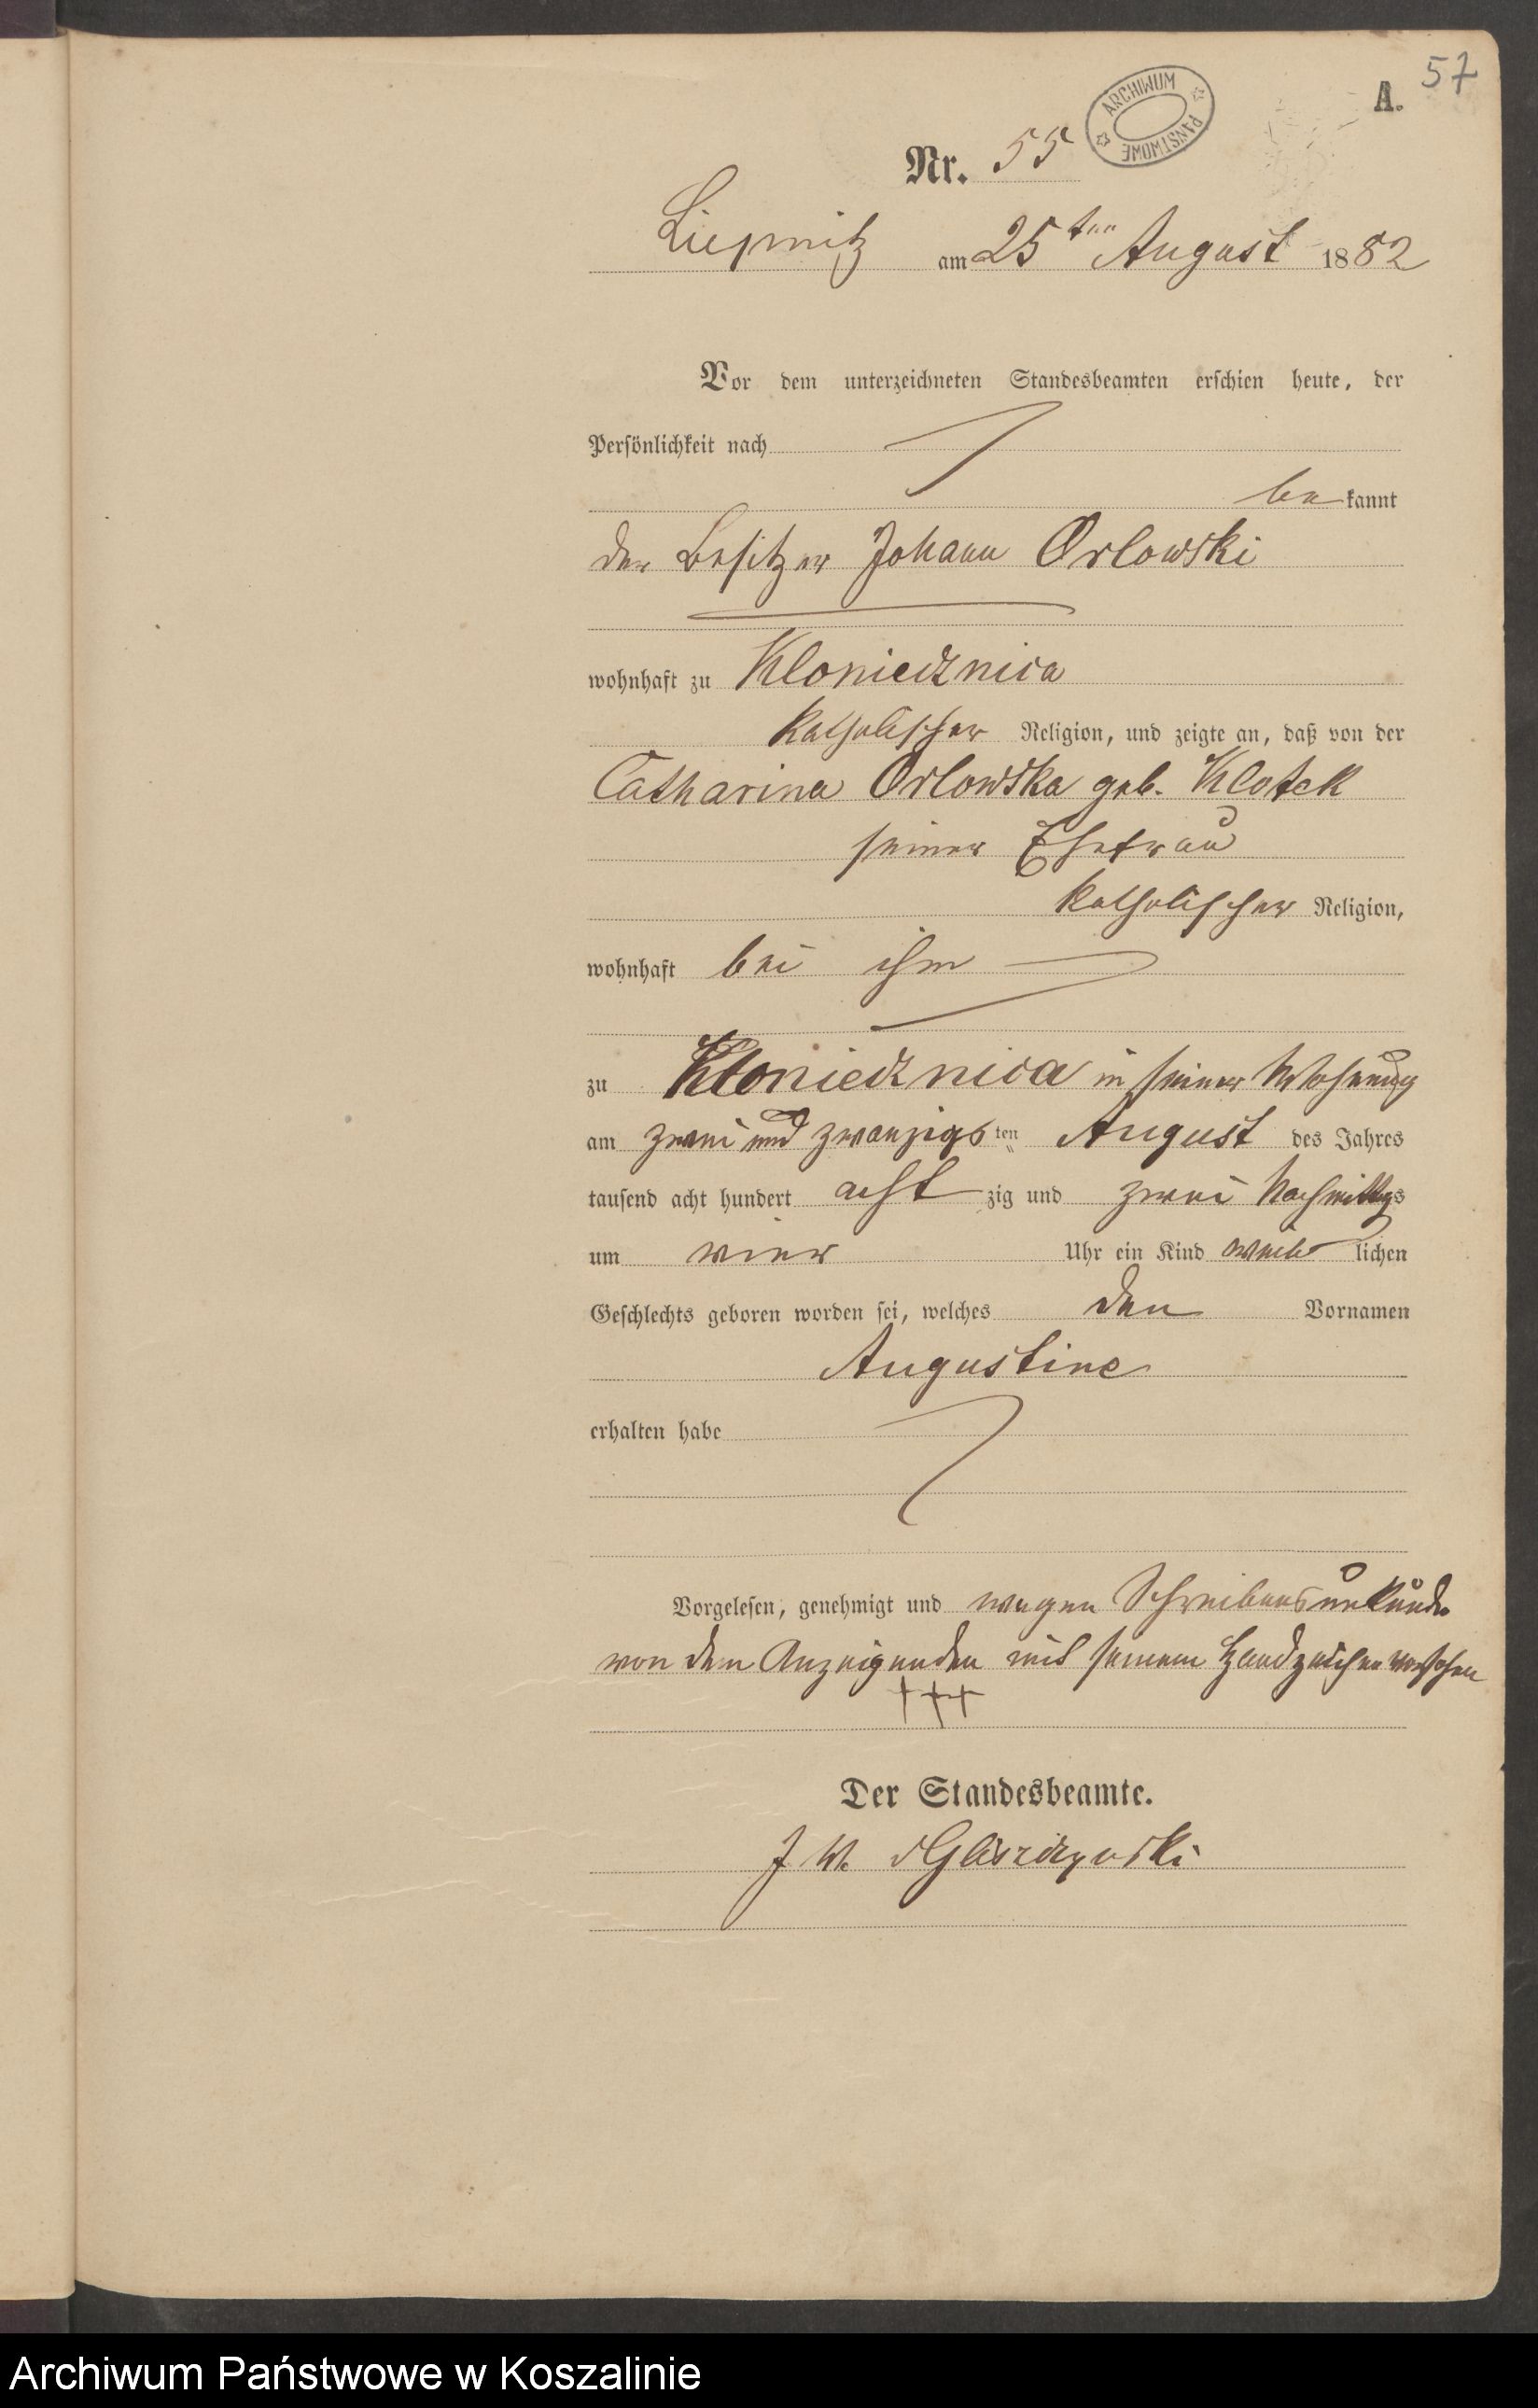 57
A.
ARCHIWUM PAŃSTWOWE
Nr. 55
Liepnitz am 25ten August 1882
Vor dem unterzeichneten Standesbeamten erschien heute, der
Persönlichkeit nach
be kannt
der Besitzer Johann Orlowski
wohnhaft zu Kloniecznica
katholischer Religion, und zeigte an, daß von der
Catharina Orlowska geb. Klotek
seiner Ehefrau
katholischer Religion,
wohnhaft bei ihm
zu Kloniecznica in seiner Wohnung
am zwei und zwanzigsten August des Jahres
tausend acht hundert acht zig und zwei Nachmittgs
um vier Uhr ein Kind weib lichen
Geschlechts geboren worden sei, welches den Vornamen
Augustine
erhalten habe
Vorgelesen, genehmigt und wegen Schreibensunkunde
von dem Anzeigenden mit seinem Handzeichen versehen
+++
Der Standesbeamte.
J W.
Archiwum Państwowe w Koszalinie